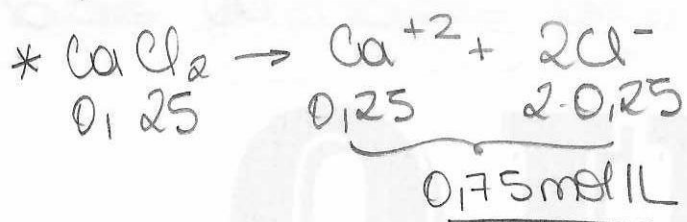 * CaCl₂ → Ca⁺² + 2Cl⁻
0,25 0,25 2·0,25
0,75 mol/L